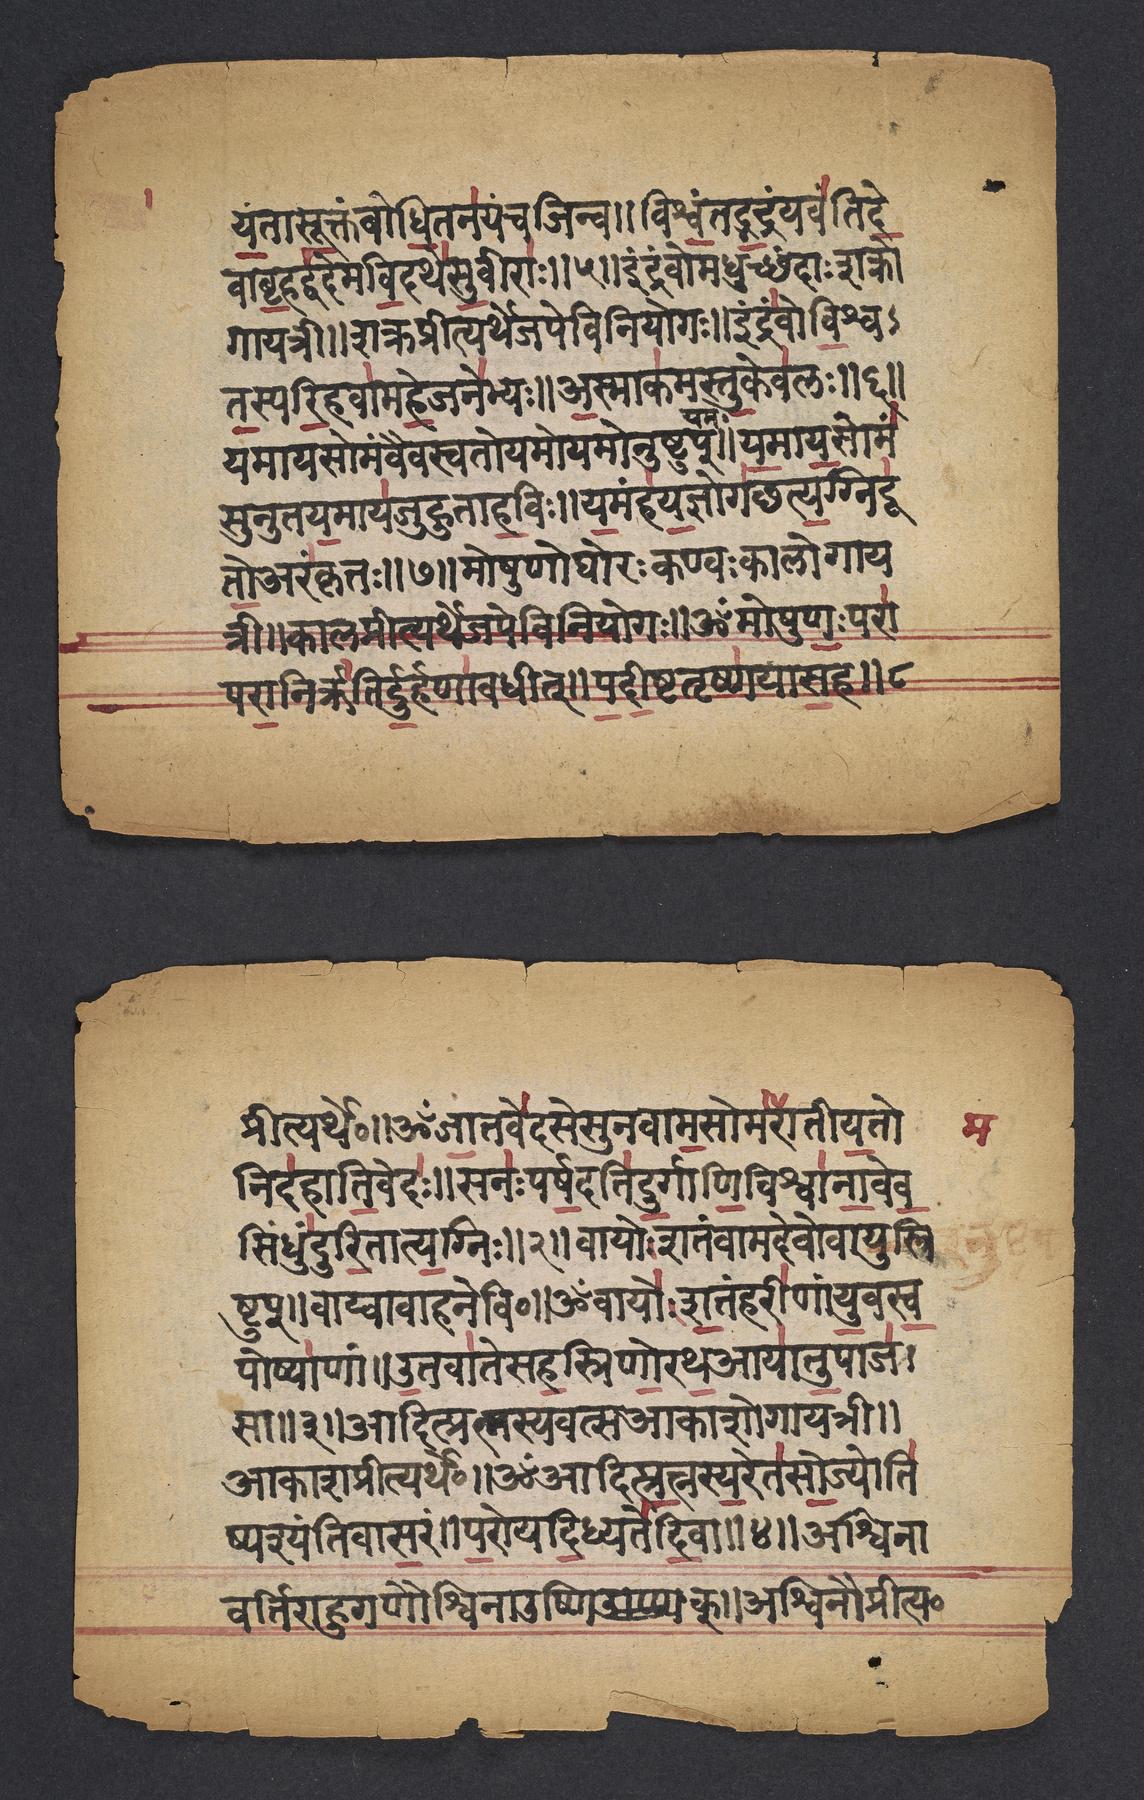 यंतासूक्तंबोधितनयंचजिन्व॥विश्वंतद्रुद्रुंयवंतिदे
वाबृहद्वदेमविदथेसुवीराः॥५॥इंद्रंवोमधुच्छंदाःशक्रो
गायत्री॥शक्रप्रीत्यर्थेजपेविनियोगः॥इंद्रंवोविश्वऽ
तस्परिहवामहेजनेभ्यः॥अस्माकमस्तुकेवलः॥६॥
यम॰
यमायसोमंवैवस्वतोयमोयमोनुष्टुप्॥यमायसोमं
सुनुतयमायजुहुताहविः॥यमंहयज्ञोगछत्यग्निदू
तोअरंकृतः॥७॥मोषुणोघोरःकण्वःकालोगाय
त्री॥कालप्रीत्यर्थेजपेविनियोगः॥ॐमोषुणःपरा
परानिर्ऋतिर्दुर्हणावधीत्॥पदीष्टतृष्णयासह॥८
प्रीत्यर्थे०॥ॐजातवेदसेसुनवामसोमरातीयतो
म
निदहातिवेदः॥सनःपर्षदतिदुर्गाणिविश्वानावेव
सिंधुंदुरितात्यग्निः॥२॥वायोःशतंवामदेवोवायुस्त्रि
ष्टुप्॥वाय्वावाहनेवि०॥ॐवायोःशतंहरीणांयुवस्व
पोष्याणां॥उतवातेसहस्रिणोरथआयातुपाज।
सा॥३॥आदित्प्रत्नस्यवत्सआकाशोगायत्री॥
आकाशप्रीत्यर्थे०॥ॐआदित्प्रत्नस्यरेतसोज्योति
ष्पश्यंतिवासरं॥परोयदिध्यतेदिवा॥४॥अश्विना
वर्तिराहुगणोश्विनाउष्णिक्॥अश्विनौप्रीत्य०